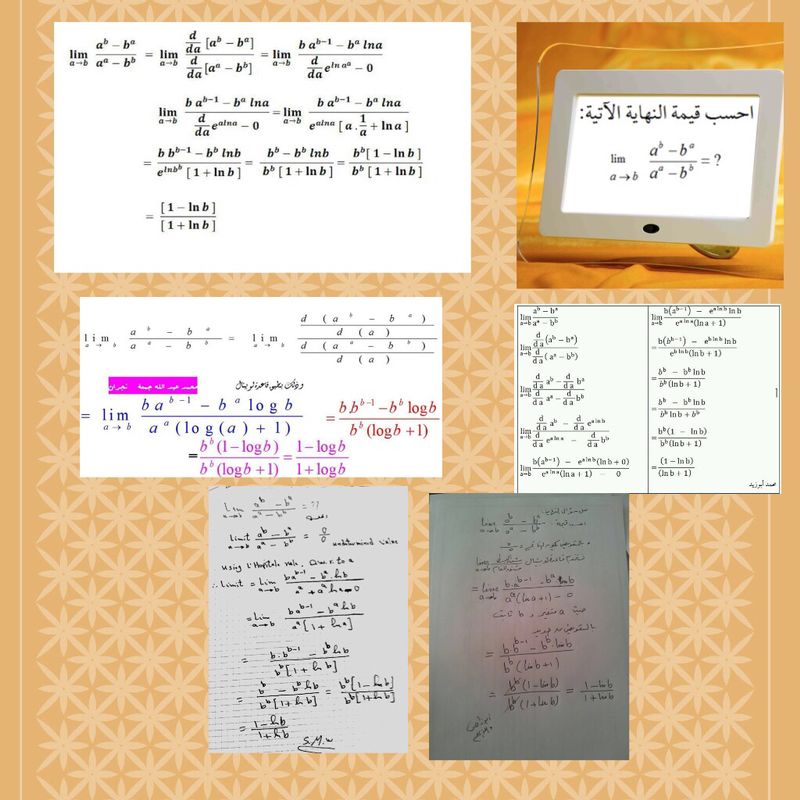 lim a→b (a^b − b^a)/(a^a − b^b) = lim a→b (d/da [a^b − b^a])/(d/da [a^a − b^b]) = lim a→b (b a^(b−1) − b^a lna)/(d/da e^(ln a^a) − 0)
lim a→b (b a^(b−1) − b^a lna)/(d/da e^(alna) − 0) = lim a→b (b a^(b−1) − b^a lna)/(e^(alna) [ a . 1/a + ln a ])
= (b b^(b−1) − b^b lnb)/(e^(lnb^b) [ 1 + ln b ]) = (b^b − b^b lnb)/(b^b [ 1 + ln b ]) = (b^b [ 1 − ln b ])/(b^b [ 1 + ln b ])
= [ 1 − ln b ]/[ 1 + ln b ]
احسب قيمة النهاية الآتية:
lim a→b (a^b − b^a)/(a^a − b^b) = ?
lim a→b (a^b − b^a)/(a^a − b^b) = lim a→b (d(a^b − b^a)/d(a))/(d(a^a − b^b)/d(a))
محمد عبد الله جمعة نجران
وذلك بتطبيق قاعدة لوبيتال
= lim a→b (b a^(b−1) − b^a log b)/(a^a (log(a) + 1)) = (b.b^(b−1) − b^b log b)/(b^b (log b + 1))
= (b^b (1 − log b))/(b^b (log b + 1)) = (1 − log b)/(1 + log b)
lim a→b (a^b − b^a)/(a^a − b^b)
lim a→b (d/da (a^b − b^a))/(d/da (a^a − b^b))
lim a→b (d/da a^b − d/da b^a)/(d/da a^a − d/da b^b)
lim a→b (d/da a^b − d/da e^(a ln b))/(d/da e^(a ln a) − d/da b^b)
lim a→b (b(a^(b−1)) − e^(a ln b)(ln b + 0))/(e^(a ln a)(ln a + 1) − 0)
lim a→b (b(a^(b−1)) − e^(a ln b) ln b)/(e^(a ln a)(ln a + 1))
= (b(b^(b−1)) − e^(b ln b) ln b)/(e^(b ln b)(ln b + 1))
= (b^b − b^b ln b)/(b^b (ln b + 1))
= (b^b − b^b ln b)/(b^b ln b + b^b)
= (b^b (1 − ln b))/(b^b (ln b + 1))
= (1 − ln b)/(ln b + 1)
محمد أبوزيد
Lim a→b (a^b − b^a)/(a^a − b^b) = ??
Limit a→b (a^b − b^a)/(a^a − b^b) = 0/0
using L'Hopitals rule,
∴ Limit = Lim a→b (b a^(b−1) − b^a ln b)/(a^a + a^a ln a − 0)
= Lim a→b (b a^(b−1) − b^a ln b)/(a^a [1 + ln a])
= (b . b^(b−1) − b^b ln b)/(b^b [1 + ln b])
= (b^b − b^b ln b)/(b^b [1 + ln b]) = (b^b [1 − ln b])/(b^b [1 + ln b])
= (1 − ln b)/(1 + ln b)
S.M.W
(a^b − b^a)/(a^a − b^b)
= (b.a^(b−1) − b^a ln b)/(a^a (ln a + 1) − 0)
= (b.b^(b−1) − b^b . ln b)/(b^b (ln b + 1))
= (b^b (1 − ln b))/(b^b (1 + ln b)) = (1 − ln b)/(1 + ln b)